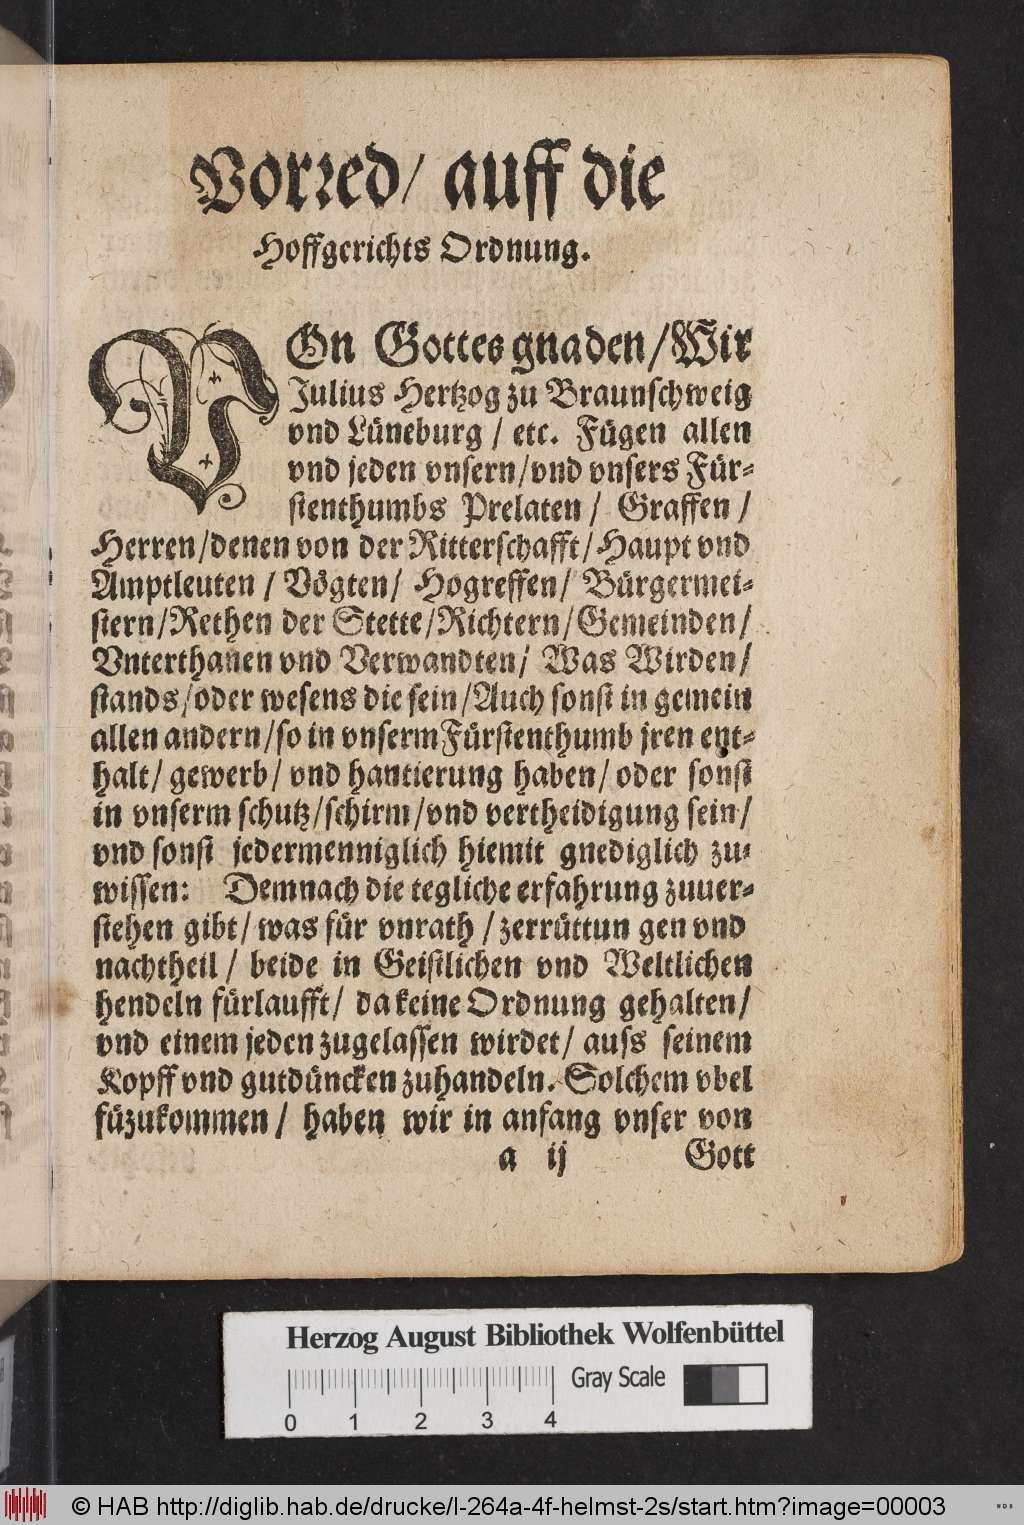 Vorꝛed/ auff die
Hoffgerichts Ordnung.
VOn Gottes gnaden/Wir
Julius Hertzog zu Braunschweig
vnd Lüneburg / etc. Fügen allen
vnd jeden vnsern/vnd vnsers Für-
stenthumbs Prelaten / Graffen /
Herren/denen von der Ritterschafft/Haupt vnd
Amptleuten / Vögten/ Hogreffen/ Bürgermei-
stern/Rethen der Stette/Richtern/Gemeinden/
Vnterthanen vnd Verwandten/ Was Wirden/
stands/oder wesens die sein/Auch sonst in gemein
allen andern/so in vnserm Fürstenthumb jren ent-
halt/ gewerb/ vnd hantierung haben/ oder sonst
in vnserm schutz/schirm/vnd vertheidigung sein/
vnd sonst jedermenniglich hiemit gnediglich zu-
wissen: Demnach die tegliche erfahrung zuuer-
stehen gibt/ was für vnrath / zerrüttun gen vnd
nachtheil / beide in Geistlichen vnd Weltlichen
hendeln fürlaufft/ da keine Ordnung gehalten/
vnd einem jeden zugelassen wirdet/ auss seinem
Kopff vnd gutdüncken zuhandeln. Solchem vbel
füzukommen / haben wir in anfang vnser von
a ij Gott
Herzog August Bibliothek Wolfenbüttel
0 1 2 3 4 Gray Scale
© HAB http://diglib.hab.de/drucke/l-264a-4f-helmst-2s/start.htm?image=00003
WDB